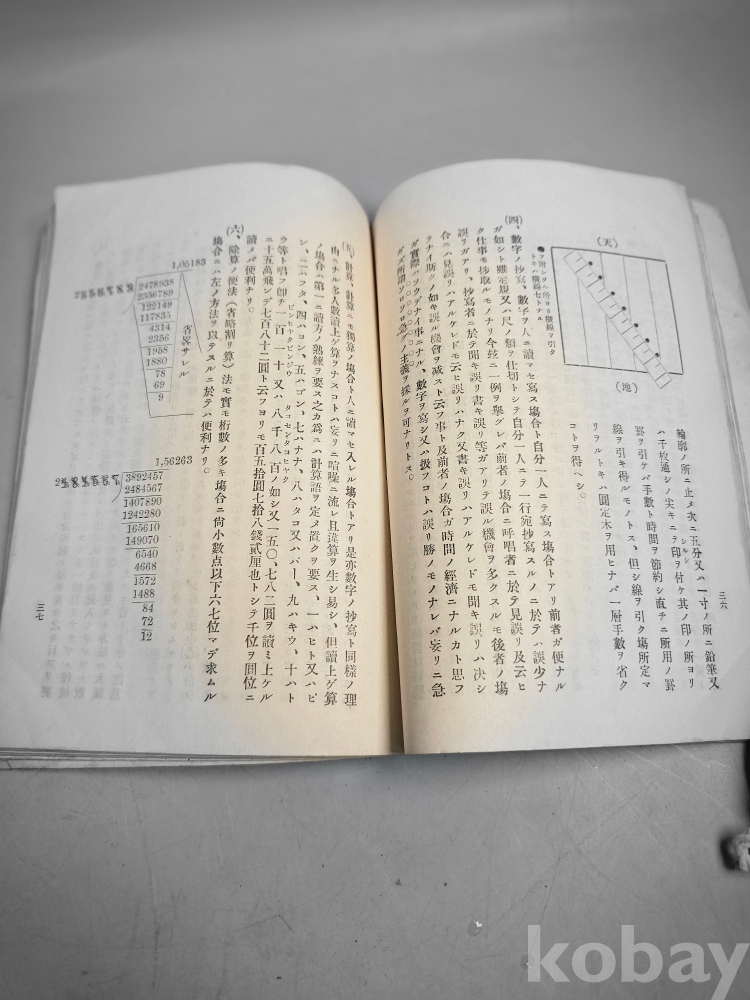 三六
輪廓ノ所ニ止メ次ニ五分又ハ一寸ノ所ニ鉛筆又
ハ千枚通シノ尖キニテ印ヲ付ケ其ノ印ノ所ヨリ
罫ヲ引ケバ手數ト時間ヲ節約シ直チニ所用ノ罫
線ヲ引キ得ルモノトス、但シ線ヲ引ク塲所定マ
リヲルトキハ圓定木ヲ用ヒナバ一層手數ヲ省ク
コトヲ得ヘシ。
(天)
(地)
(四)、數字ノ抄寫、數字ヲ人ニ讀マセ寫ス塲合ト自分一人ニテ寫ス塲合トアリ前者ガ便ナル
ガ如シト雖定規又ハ尺ノ類ヲ仕切トシテ自分一人ニテ一行宛抄寫スルノニ於テハ誤少ナ
ク仕事モ捗取ルモノナリ今玆ニ一例ヲ擧グレバ前者ノ塲合ニ呼唱者ニ於テ見誤リ及云ヒ
誤リガアリ、抄寫者ニ於テ聞キ誤リ書キ誤リ等ガアリテ誤ル機會ヲ多クスルモ後者ノ塲
合ニハ見誤リハアルケレドモ云ヒ誤リハナク又書キ誤リハアルケレドモ聞キ誤リハ決シ
テナイ斯クノ如ク誤ル機會ヲ減スト云フ事ト及前者ノ塲合ガ時間ノ經濟ニナルカト思フ
ガ實際ハソウデナイ事ニナル、數字ヲ寫シ又ハ扱フコトハ誤リ勝ノモノナレバ妄リニ急
ガズ所謂ソロソロ急グノ主義ヲ採ルヲ可ナリトス。
(五)、計算、計算ニモ獨算ノ塲合ト人ニ讀マセ入レル塲合トアリ是亦數字ノ抄寫ト同樣ノ理
由ニナル多人數讀上ゲ算ヲナスコトハ妄リニ喧噪ニ流レ且違算ヲ生シ易シ、但讀上ゲ算
ノ塲合ハ第一ニ讀方ノ熟練ヲ要ス之カ爲ニハ計算語ヲ定メ置クヲ要ス、一ハヒト又ハピ
ン、二ハフタ、四ハヨン、五ハゴン、七ハナナ、八ハタコ又ハバー、九ハキウ、十ハト
ウ等ト唱フ卽チ一百一十又ハ八千八百ノ如シ又一五〇、七八二圓ヲ讀ミ上ケル
ピンヒヤクピンジウ
タコセンタコヒヤク
ニ十五萬飛ンデ七百八十二圓ト云フヨリモ百五拾圓七拾八錢貳厘也トシテ千位ヲ圓位ニ
讀メバ便利ナリ。
(六)、除算ノ便法(省略割リ算)法モ實モ桁數ノ多キ塲合ニ尙小數点以下六七位マデ求ムル
塲合ニハ左ノ方法ヲ以テスルニ於テハ便利ナリ。
1,05183
2478938
2356789
122149
117835
4314
2356
1958
1880
78
69
9
省畧サレル
1,56263
3892457
2484567
1407890
1242280
165610
149070
6540
4668
1572
1488
84
72
12
三七
kobay